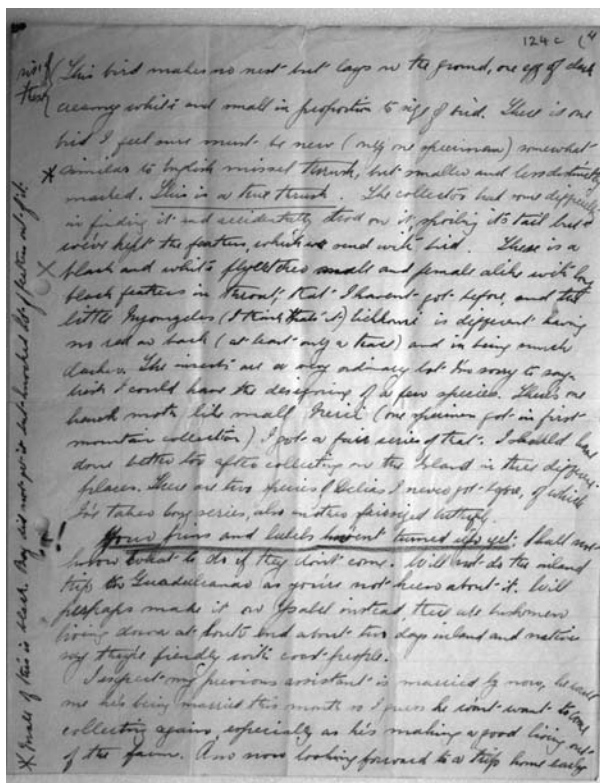 124c (4
size of thrush
(This bird makes no nest but lays on the ground, one egg of dark
creamy white and small in proportion to size of bird. There is one
bird I feel sure must be new (only one specimen) somewhat
* similar to English missel thrush, but smaller and less distinctly
marked. This is a true thrush. The collector had some difficulty
in finding it and accidentally trod on it, spoiling its tail but
we've kept the feathers, which we send with bird. There is a
X black and white flycatcher male and female alike with long
black feathers in throat, that I haven't got before, and the
little (I think that's it) is different having
no red on back (at least only a trace) and in being much
darker. The insects are a very ordinary lot I'm sorry to say
wish I could have the describing of a few species. There's one
hawk moth like small Nerii (one specimen got in first
mountain collection) I got a fair series of that. I should have
done better too after collecting on the Island in three different
places. There are two species of Delias I never got before, of which
I've taken long series, also butterfly.
! Your pins and labels haven't turned up yet. Shall not
know what to do if they don't come. Will not do the inland
trip to Guadalcanar as you're not keen about it. Will
perhaps make it on Ysabel instead, there are bushmen
living down at South end about two days inland and natives
say they're friendly with coast people.
I expect my previous assistant is married by now, he
me he's being married this month so I guess he won't want to come
collecting again, especially as he's making a good living out
of the farm. Am now looking forward to a trip home early
* Male of this is black. Boy did not get it but knocked lot of feathers out of it.